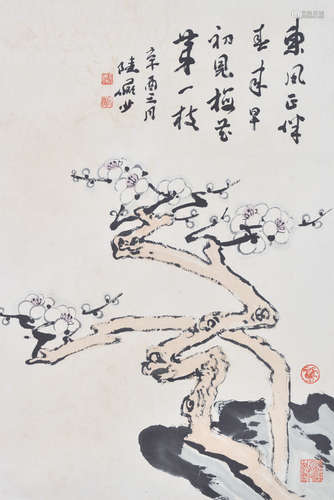 東風正伴
春來早
初見梅花
第一枝
辛酉三月
陸儼少